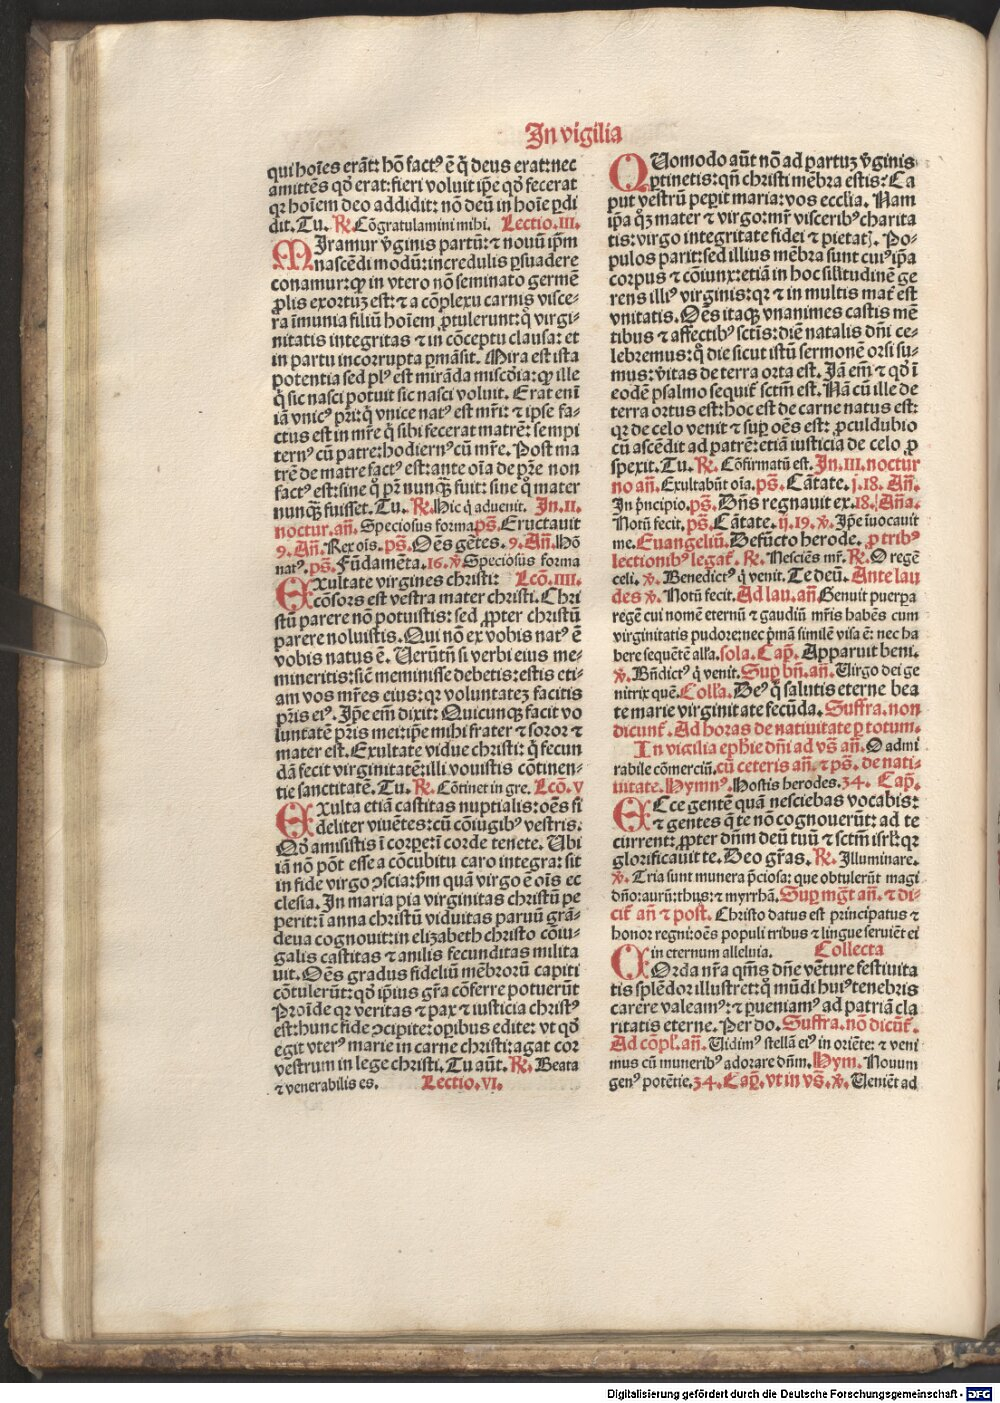 In vigilia
qui hoīes erāt: hō fact⁹ ē q̄ deus erat: nec
amittēs qḋ erat: fieri voluit ip̄e qḋ fecerat
qꝛ hoīem deo addidit: nō deū in hoīe ꝑdi
dit. Tu. ℟. Cōgratulamini mihi. Lectio. III.
MIramur v̄ginis partū: ⁊ nouū ip̄m
nascēdi modū: incredulis ꝑsuadere
conamur: ꝙ in vtero nō seminato germē
ꝓlis exortuꝫ est: ⁊ a cōplexu carnis visce-
ra īmunia filiū hoīem ꝓtulerunt: q̊ virgi-
nitatis integritas ⁊ in cōceptu clausa: et
in partu incorrupta ꝑmāsit. Mira est ista
potentia sed pl⁹ est mirāda miscḋia: ꝙ ille
q̇ sic nasci potuit sic nasci voluit. Erat enī
iā vnic⁹ pr̄i: q̇ vnice nat⁹ est mr̄i: ⁊ ipse fa-
ctus est in mr̄e q̇ sibi fecerat matrē: sempi
tern⁹ cū patre: hodiern⁹ cū mr̄e. Post ma
trē de matre fact⁹ est: ante oīa de pr̄e non
fact⁹ est: sine q̊ pr̄ nunqꝫ fuit: sine q̊ mater
nunqꝫ fuisset. Tu. ℟. Hic q̇ aduenit. In. II.
noctur. añ. Speciosus forma ps̄. Eructauit
9. Añ. Rex oīs. ps̄. Oēs gētes. 9. Añ. Hō
nat⁹. ps̄. Fūdamēta. 16. ℣ Speciosus forma
EXultate virgines christi: Lcō. IIII.
cōsors est vestra mater christi. Chri
stū parere nō potuistis: sed ꝓpter christū
parere noluistis. Qui nō ex vobis nat⁹ ē
vobis natus ē. Uerūtñ si verbi eius me-
mineritis: sicē meminisse debetis: estis eti-
am vos mr̄es eius: qꝛ voluntateꝫ facitis
pr̄is ei⁹. Ip̄e em̄ dixit: Quicunqꝫ facit vo
luntatē pr̄is mei: ip̄e mihi frater ⁊ soror ⁊
mater est. Exultate vidue christi: q̇ fecun
dā fecit virginitatē: illi vouistis cōtinen-
tie sanctitatē. Tu. ℟. Cōtinet in gre. Lcō. V
EXulta etiā castitas nuptialis: oēs fi
deliter viuētes: cū cōiugib⁹ vestris.
Qḋ amisistis ī corpe: ī corde tenete. Ubi
iā nō pōt esse a cōcubitu caro integra: sit
in fide virgo ↄscia: ẜm quā virgo ē oīs ec
clesia. In maria pia virginitas christū pe
perit: ī anna christū viduitas paruū grā-
deua cognouit: in elizabeth christo cōiu-
galis castitas ⁊ anilis fecunditas milita
uit. Oēs gradus fideliū mēbrorū capiti
cōtulerūt: qḋ ip̄ius gr̄a cōferre potuerūt
Proīde qꝛ veritas ⁊ pax ⁊ iusticia christ⁹
est: hunc fide ↄcipite: opibus edite: vt qḋ
egit vter⁹ marie in carne christi: agat cor
vestrum in lege christi. Tu aūt. ℟. Beata
⁊ venerabilis es. Lectio. VI.
QUomodo aūt nō ad partuꝫ v̄ginis
ꝑtinetis: qñ christi mēbra estis: Ca
put vestrū peꝑit maria: vos ecclīa. Nam
ip̄a qꝫ mater ⁊ virgo: mr̄ viscerib⁹ charita
tis: virgo integritate fidei ⁊ pietatꝭ. Po-
pulos parit: sed illius mēbra sunt cui⁹ ip̄a
corpus ⁊ cōiunx: etiā in hoc sil̄itudinē ge
rens illi⁹ virginis: qꝛ ⁊ in multis mat̄ est
vnitatis. Oēs itaqꝫ vnanimes castis mē
tibus ⁊ affectib⁹ sctīs: diē natalis dñi ce-
lebremus: q̊ die sicut istū sermonē orsi su-
mus: v̄itas de terra orta est. Iā em̄ ⁊ qḋ ī
eodē psalmo sequit̄ sctm̄ est. Nā cū ille de
terra ortus est: hoc est de carne natus est:
qꝛ de celo venit ⁊ suꝑ oēs est: ꝓculdubio
cū ascēdit ad patrē: etiā iusticia de celo ꝓ
spexit. Tu. ℟. Cōfirmatū est. In. III. noctur
no añ. Exultabūt oīa. ps̄. Cātate. j. 18. Añ.
In p̄ncipio. ps̄. Dñs regnauit ex. 18. Añā.
Notū fecit. ps̄. Cātate. ij. 19. ℣. Ip̄e īuocauit
me. Euangeliū. Defūcto herode. ꝓ trib⁹
lectionib⁹ legat̄. ℟. Nesciēs mr̄. ℟. O regē
celi. ℣. Benedict⁹ q̇ venit. Te deū. Ante lau
des ℣. Notū fecit. Ad lau. añ. Genuit puerꝑa
regē cui nomē eternū ⁊ gaudiū mr̄is habēs cum
virginitatis pudore: nec p̄mā similē visa ē: nec ha
bere sequētē all̄a. sola. Cap̄. Apparuit beni.
℣. Bñdict⁹ q̇ venit. Suꝑ bñ. añ. Uirgo dei ge
nitrix quē. Coll̄a. De⁹ q̇ salutis eterne bea
te marie virginitate fecūda. Suffra. non
dicunt̄. Ad horas de natiuitate ꝑ totum.
In vigilia eph̄ie dñi ad vs̄ añ. O admi
rabile cōmerciū. cū ceteris añ. ⁊ ps̄. de nati-
uitate. Hymn⁹. Hostis herodes. 34. Cap̄.
ECce gentē quā nesciebas vocabis:
⁊ gentes q̄ te nō cognouerūt: ad te
current: ꝓpter dñm deū tuū ⁊ sctm̄ isrl̄: qꝛ
glorificauit te. Deo gr̄as. ℟. Illuminare.
℣. Tria sunt munera p̄ciosa: que obtulerūt magi
dño: aurū: thus: ⁊ myrrhā. Suꝑ mḡt añ. ⁊ di-
cit̄ añ ⁊ post. Christo datus est principatus ⁊
honor regni: oēs populi tribus ⁊ lingue seruiēt ei
in eternum alleluia. Collecta
COrda nr̄a q̄ms dñe vēture festiuita
tis splēdor illustret: q̊ mūdi hui⁹ tenebris
carere valeam⁹: ⁊ ꝑueniam⁹ ad patriā cla
ritatis eterne. Per do. Suffra. nō dicūt̄.
Ad cōpl̄. añ. Uidim⁹ stellā ei⁹ in oriēte: ⁊ veni
mus cū munerib⁹ adorare dñm. Hym. Nouum
gen⁹ potētie. 34. Cap̄. vt in vs̄. ℣. Ueniēt ad
Digitalisierung gefördert durch die Deutsche Forschungsgemeinschaft - DFG